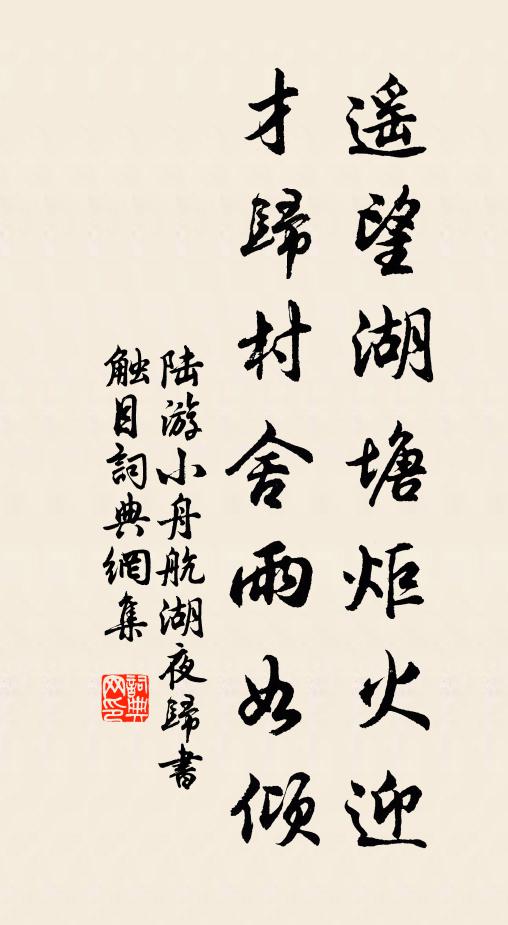 遥望湖塘炬火迎
才歸村舍雨如傾
陆游小舟航湖夜歸書
触目詞典網集
詞典网印